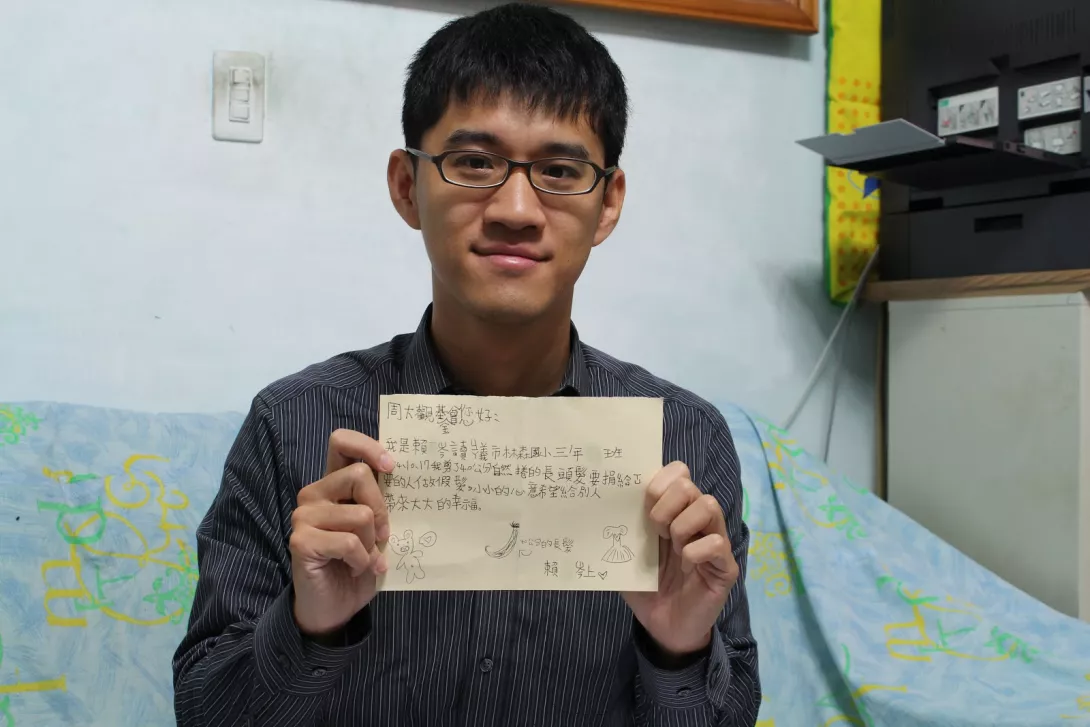 周大觀基金會您好：
我是賴 岑讀嘉義市林森國小三年 班
4.10.17我剪了40公分自然捲的長頭髮要捐給需
要的人做假髮。小小的心意希望給別人
帶來大大的幸福。
公分的長髮
賴 岑上